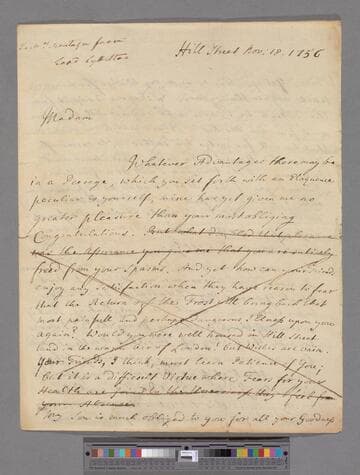 from
Lord Lyttelton
Hill Street Nov. 18. 1756
Madam
Whatever Advantages there may be
in a Peerage, which you set forth with an Eloquence
peculiar to yourself, mine has yet given me no
greater pleasure than your most obliging
Congratulations. But what
was the Assurance you give me that you are entirely
freed from your Spasms. And yet how can your
enjoy any satisfaction when they have reason to fear
that the Return of the Frost will bring back that
most painfull and perhaps dangerous Illness upon you
again? Would you were well housed in Hill Street
and in the warm air of London! but Wishes are vain.
Your Friends, I think, must learn Patience of You,
but it is a difficult Virtue where Fears for your
Health are
your Absence
My Son is much obliged to you for all your Goodness